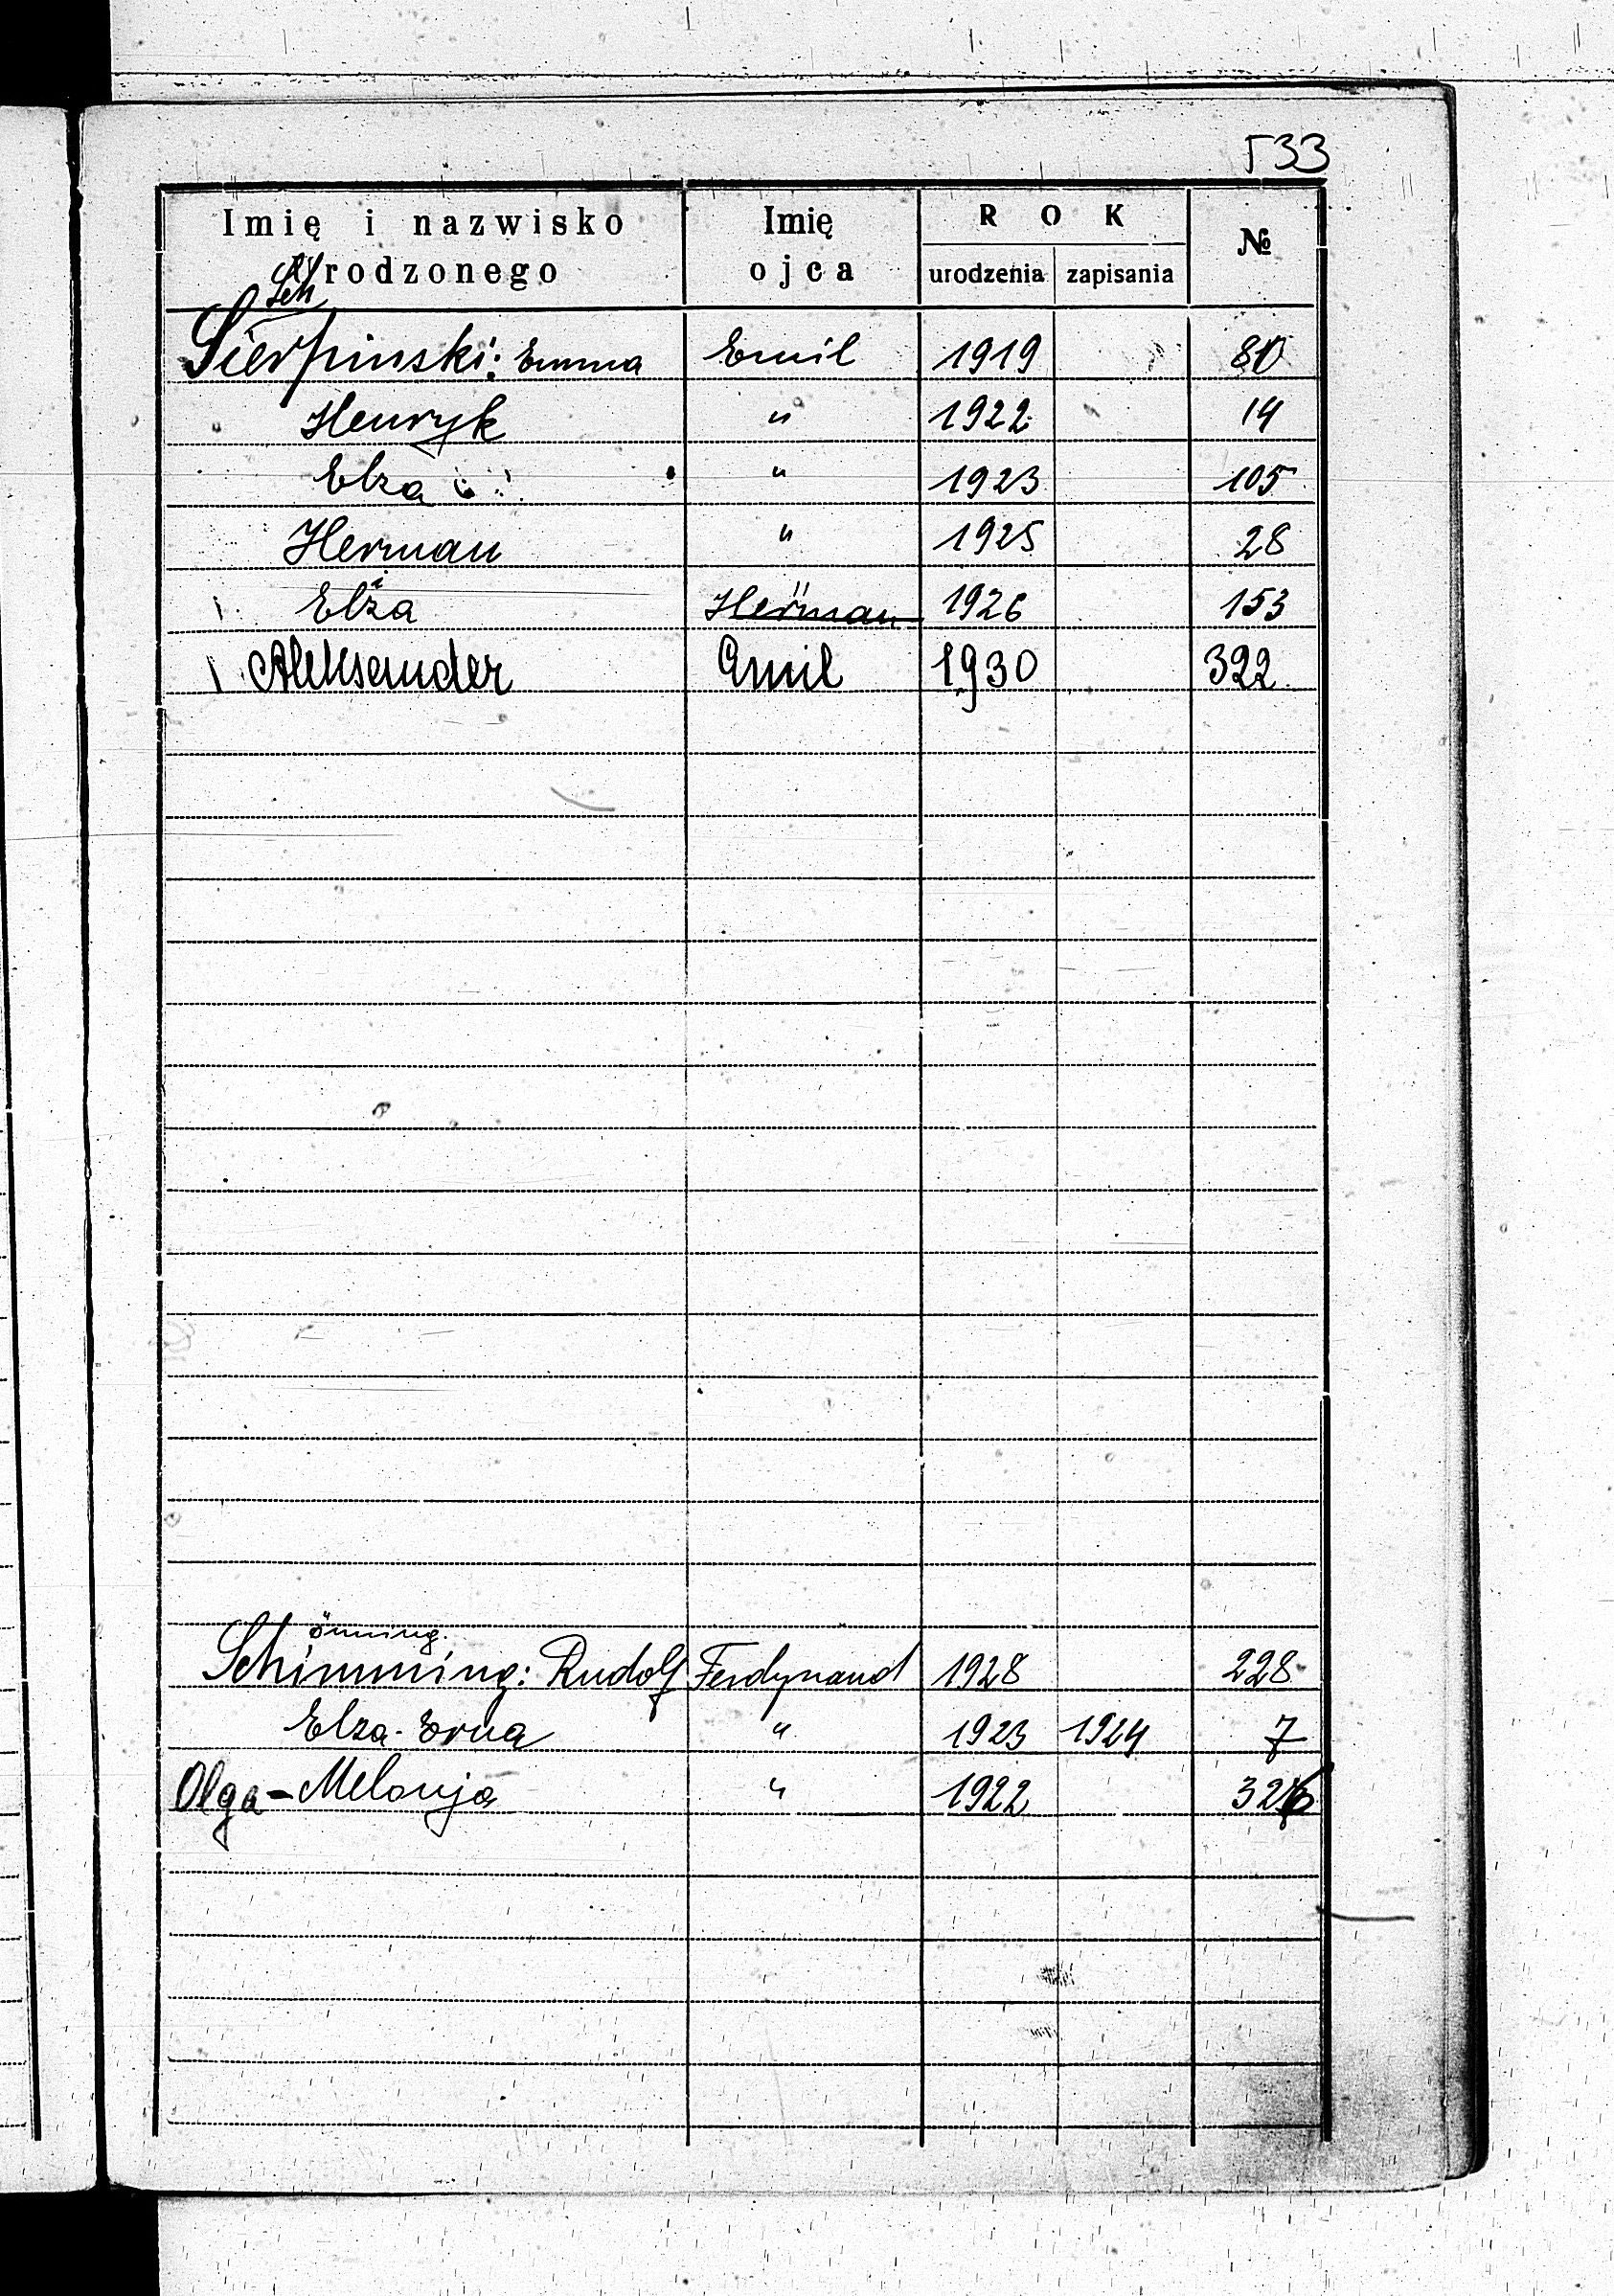 533
Imię i nazwisko Urodzonego | Imię ojca | ROK urodzenia | zapisania | №
Sch
Sierpinski: Emma | Emil | 1919 | | 80
Henryk | " | 1922 | | 14
Elza | " | 1923 | | 105
Herman | " | 1925 | | 28
Elza | " Herman | 1926 | | 153
Aleksander | Emil | 1930 | | 322
önning.
Schimming: Rudolf | Ferdynand | 1928 | | 228
Elza-Erna | " | 1923 | 1924 | 7
Olga-Melanja | " | 1922 | | 326